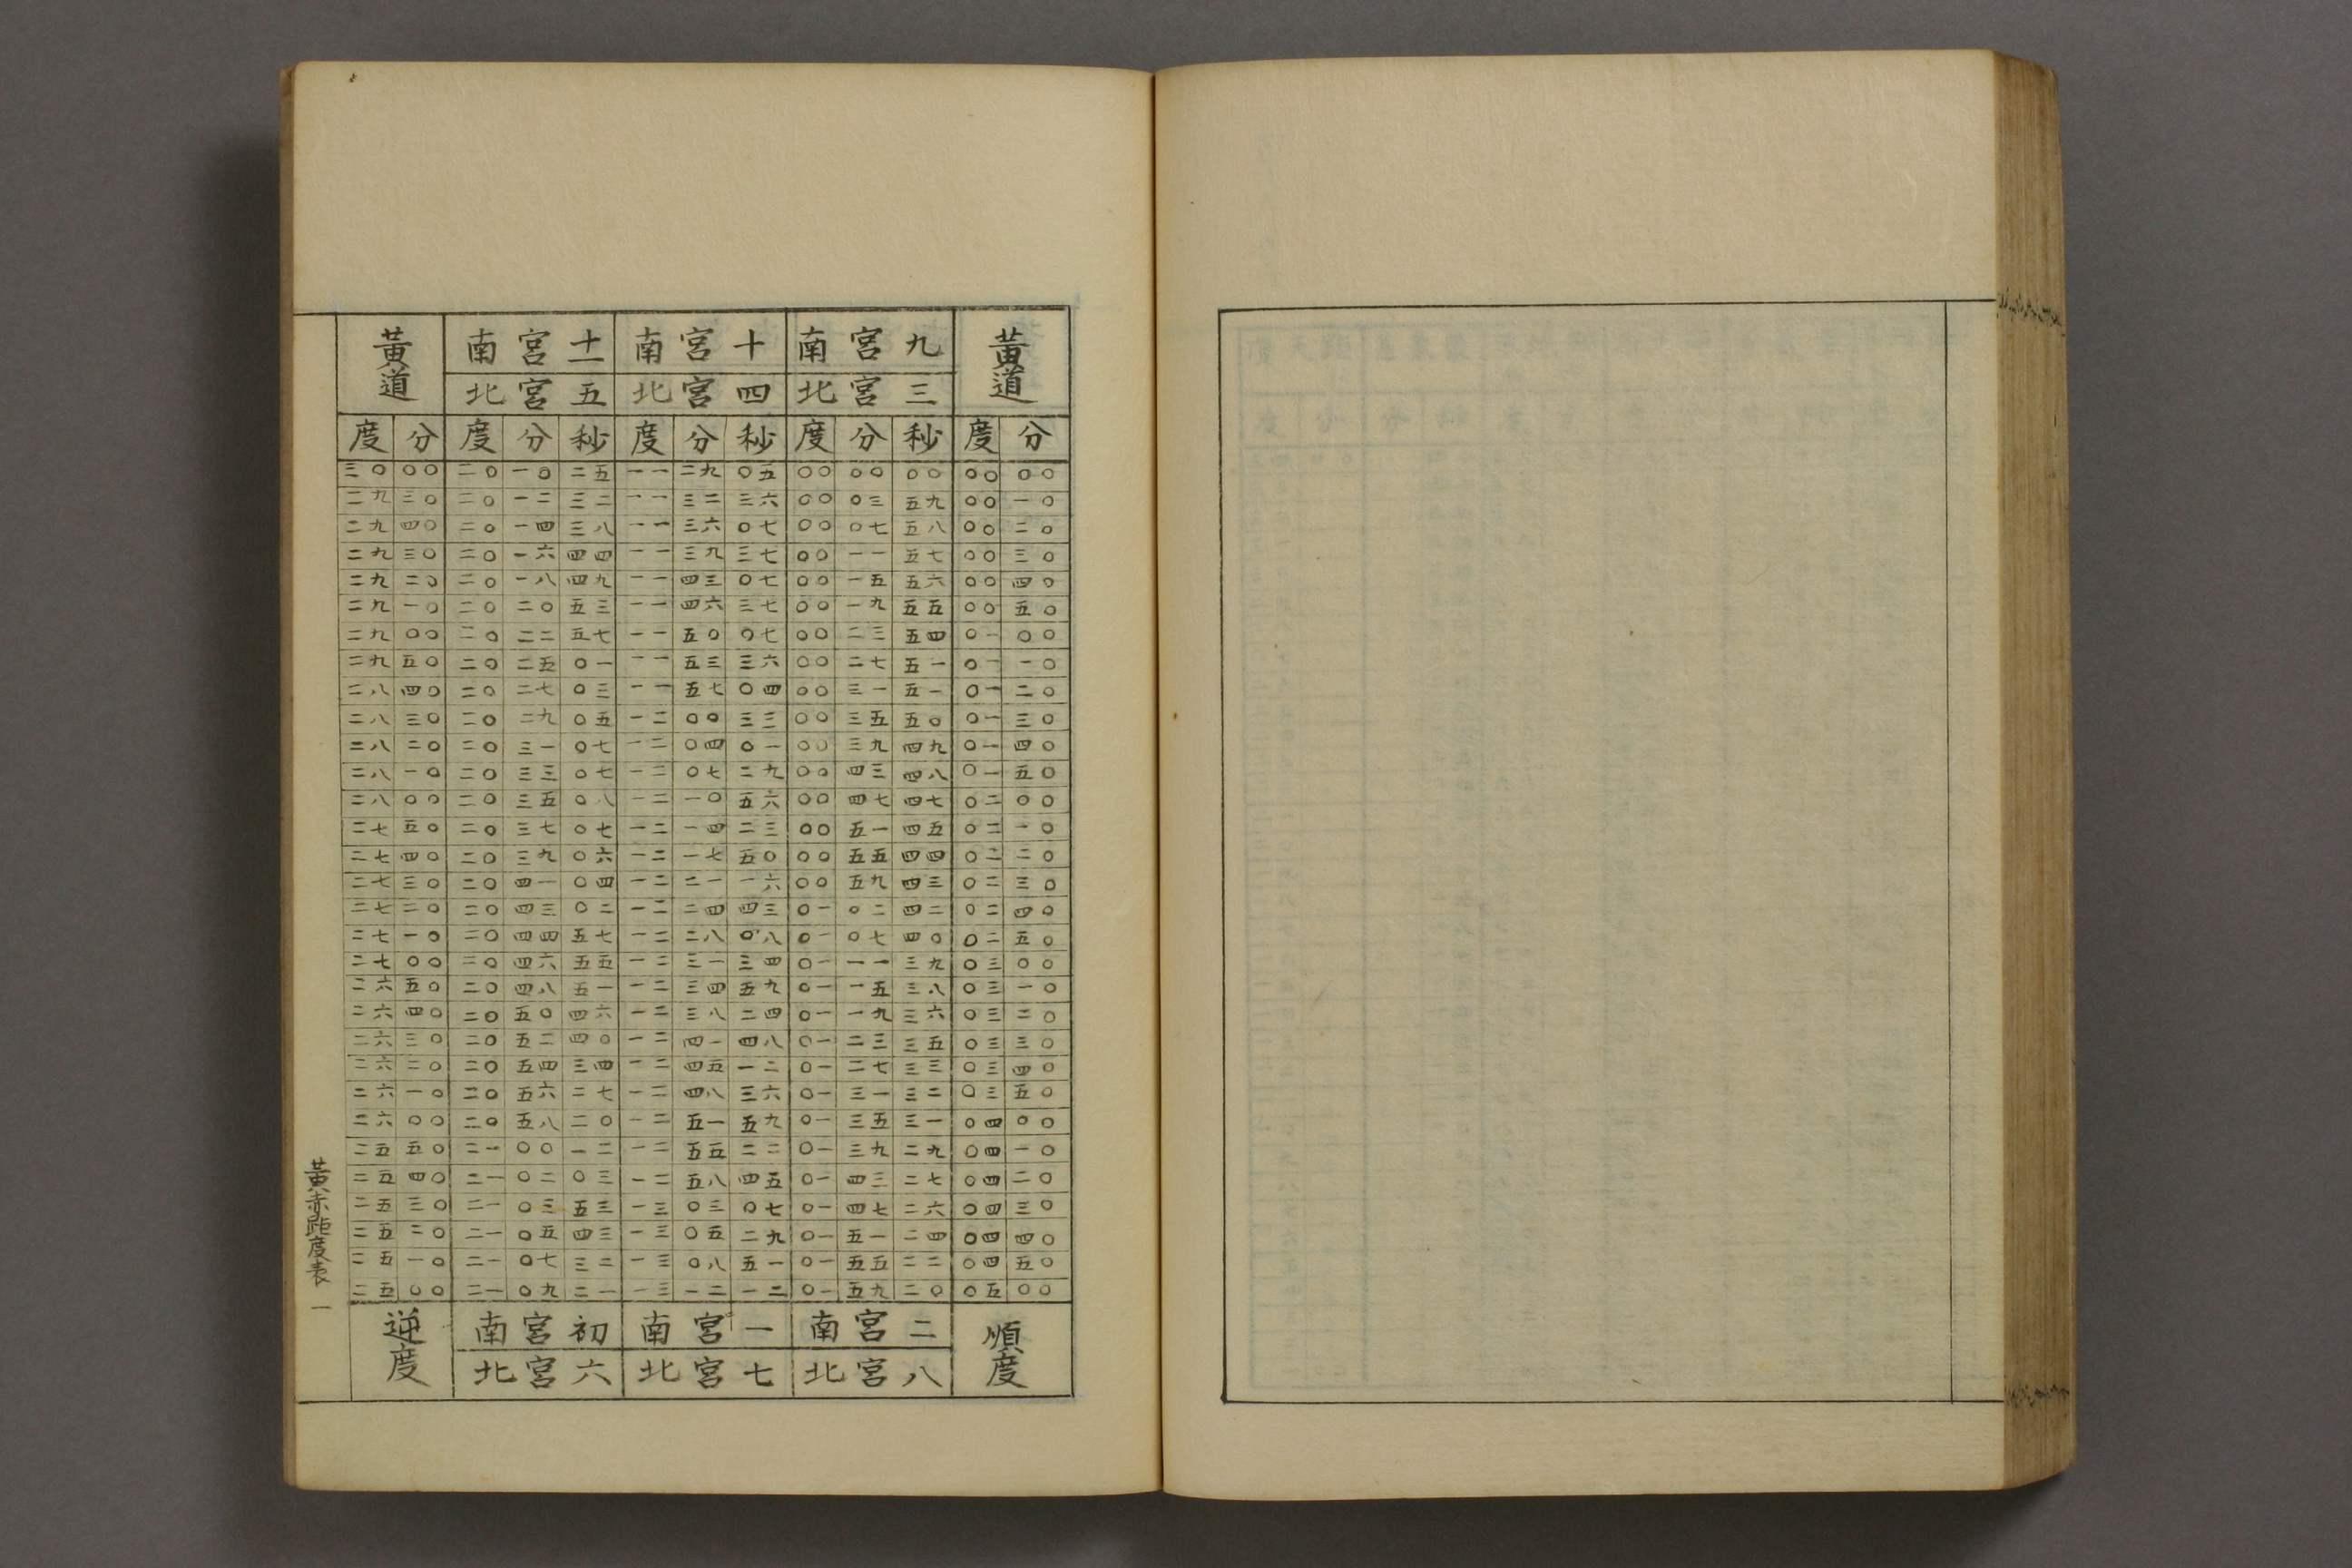 黃道 南宮十一 南宮十 南宮九 黃道
北宮五 北宮四 北宮三
度 分 度 分 秒 度 分 秒 度 分 秒 度 分
三〇 〇〇 二〇 一〇 二五 一一 二九 〇五 〇〇 〇〇 〇〇 〇〇 〇〇
二九 三〇 二〇 一二 三二 一一 三二 三六 〇〇 〇三 五九 〇〇 一〇
二九 四〇 二〇 一四 三八 一一 三六 〇七 〇〇 〇七 五八 〇〇 二〇
二九 三〇 二〇 一六 四四 一一 三九 三七 〇〇 一一 五七 〇〇 三〇
二九 二〇 二〇 一八 四九 一一 四三 〇七 〇〇 一五 五六 〇〇 四〇
二九 一〇 二〇 二〇 五三 一一 四六 三七 〇〇 一九 五五 〇〇 五〇
二九 〇〇 二〇 二二 五七 一一 五〇 〇七 〇〇 二三 五四 〇一 〇〇
二九 五〇 二〇 二五 〇一 一一 五三 三六 〇〇 二七 五一 〇一 一〇
二八 四〇 二〇 二七 〇三 一一 五七 〇四 〇〇 三一 五一 〇一 二〇
二八 三〇 二〇 二九 〇五 一二 〇〇 三三 〇〇 三五 五〇 〇一 三〇
二八 二〇 二〇 三一 〇七 一二 〇四 〇一 〇〇 三九 四九 〇一 四〇
二八 一〇 二〇 三三 〇七 一二 〇七 二九 〇〇 四三 四八 〇一 五〇
二八 〇〇 二〇 三五 〇八 一二 一〇 五六 〇〇 四七 四七 〇二 〇〇
二七 五〇 二〇 三七 〇七 一二 一四 二三 〇〇 五一 四五 〇二 一〇
二七 四〇 二〇 三九 〇六 一二 一七 五〇 〇〇 五五 四四 〇二 二〇
二七 三〇 二〇 四一 〇四 一二 二一 一六 〇〇 五九 四三 〇二 三〇
二七 二〇 二〇 四三 〇二 一二 二四 四三 〇一 〇二 四二 〇二 四〇
二七 一〇 二〇 四四 五七 一二 二八 〇八 〇一 〇七 四〇 〇二 五〇
二七 〇〇 二〇 四六 五五 一二 三一 三四 〇一 一一 三九 〇三 〇〇
二六 五〇 二〇 四八 五一 一二 三四 五九 〇一 一五 三八 〇三 一〇
二六 四〇 二〇 五〇 四六 一二 三八 二四 〇一 一九 三六 〇三 二〇
二六 三〇 二〇 五二 四〇 一二 四一 四八 〇一 二三 三五 〇三 三〇
二六 二〇 二〇 五四 三四 一二 四五 一二 〇一 二七 三三 〇三 四〇
二六 一〇 二〇 五六 二七 一二 四八 三六 〇一 三一 三二 〇三 五〇
二六 〇〇 二〇 五八 二〇 一二 五一 五九 〇一 三五 三一 〇四 〇〇
二五 五〇 二一 〇〇 一二 一二 五五 二二 〇一 三九 二九 〇四 一〇
二五 四〇 二一 〇二 〇三 一二 五八 四五 〇一 四三 二七 〇四 二〇
二五 三〇 二一 〇三 五三 一三 〇三 〇七 〇一 四七 二六 〇四 三〇
二五 二〇 二一 〇五 四三 一三 〇五 二九 〇一 五一 二四 〇四 四〇
二五 一〇 二一 〇七 三二 一三 〇八 五一 〇一 五五 二二 〇四 五〇
二五 〇〇 二一 〇九 二一 一三 一二 一二 〇一 五九 二〇 〇五 〇〇
逆度 南宮初 南宮一 南宮二 順度
北宮六 北宮七 北宮八
黃赤距度表 一